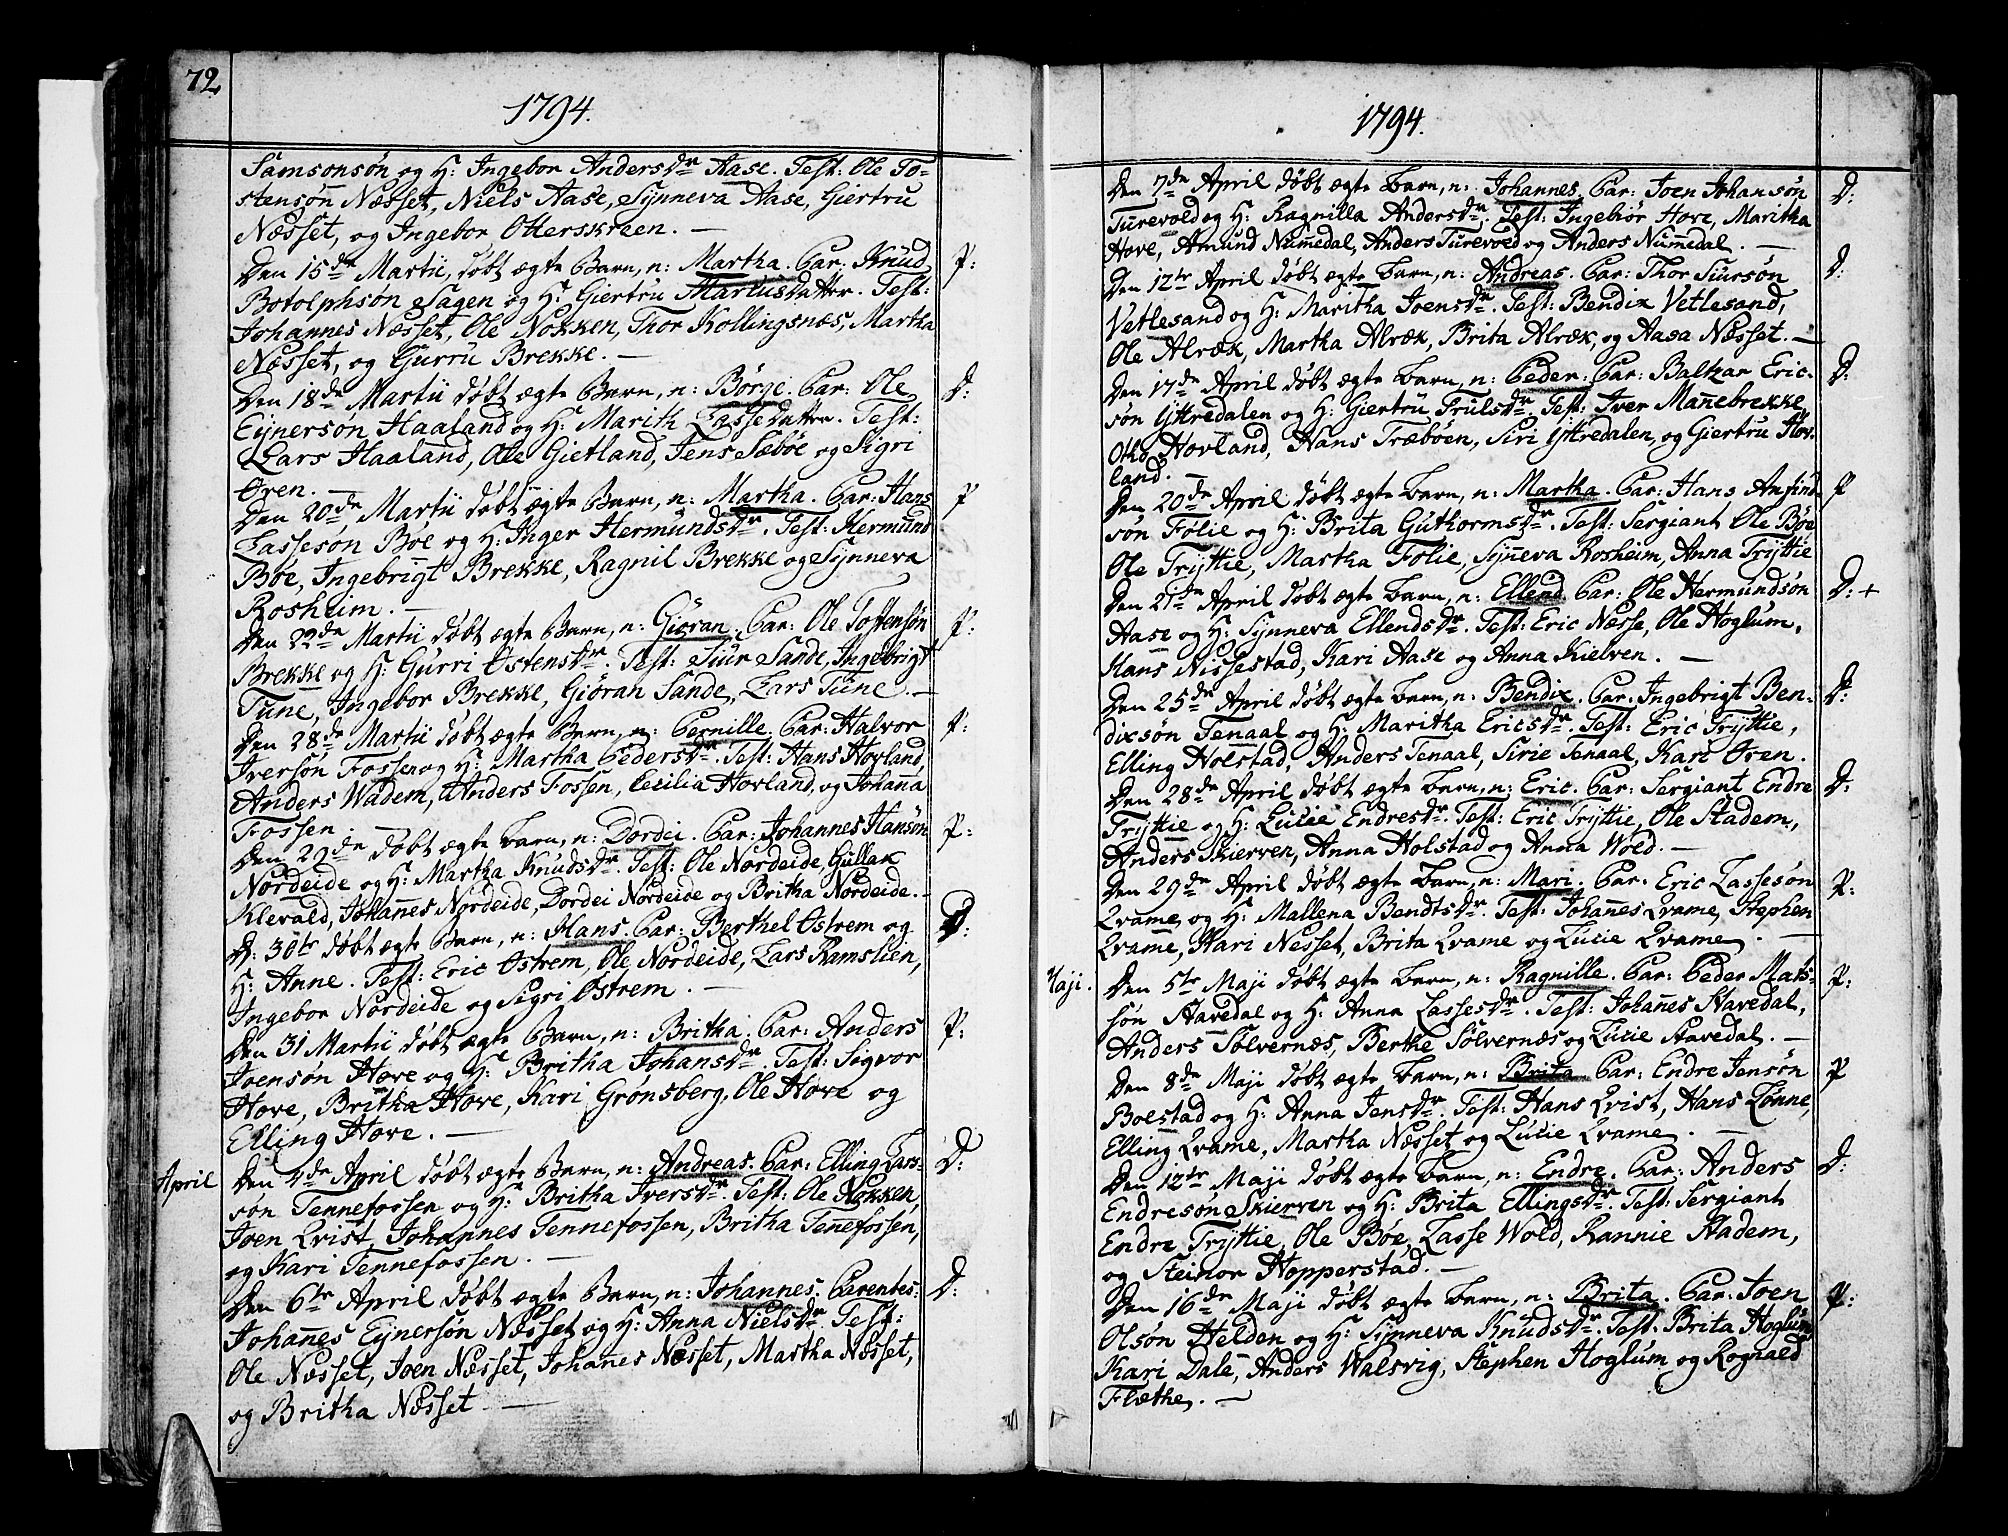 72
1794.
Samsonsøn og H: Ingebor Andersdr Aase. Test: Ole To-
stensøn Næsset, Niels Aase, Synneva Aase, Giertru
Næsset, og Ingebor Otterskreen. —
Den 15de Martii, døbt ægte Barn, n: Martha. Par: Knud P:
Botolphsøn Hagen og H: Giertru Mariusdatter. Test:
Johannes Næsset, Ole Nokken, Thor Kollingsnæs, Martha
Næsset, og Gurru Brekke. —
Den 18de Martii døbt ægte Barn, n: Børge. Par: Ole D:
Ejnerson Haaland og H: Marith Lassedatter. Test:
Lars Haaland, Ole Gietland, Jens Sæbøe og Sigri
Øren. —
Den 20de Martii døbt ægte Barn, n: Martha. Par: Hans P
Lassesøn Bøe og H: Inger Hermundsdr. Test: Hermund
Bøe, Ingebrigt Brekke, Ragnil Brekke og Synneva
Rosheim. —
Den 22de Martii døbt ægte Barn, n: Giøran. Par: Ole Tostensøn P:
Brekke og H: Gurri Østensdr. Test: Siur Sande, Ingebrigt
Tune, Ingebor Brekke, Giøran Sande, Lars Tune. —
Den 28de Martii døbt ægte Barn, n: Pernille. Par: Halvor P:
Iversøn Fossen og H: Martha Pedersdr. Test: Hans Hovland,
Anders Wadem, Anders Fossen, Cecilia Hovland, og Johanna
Fossen. —
Den 29de døbt ægte Barn, n: Dordei. Par: Johannes Hansøn P:
Nordeide og H: Martha Knudsdr. Test: Ole Nordeide, Gullak
Klevald, Johannes Nordeide, Dordei Nordeide og Britha Nordeide. —
D: 30te døbt ægte Barn, n: Hans. Par: Berthel Østrem og D:
H: Anne. Test: Eric Østrem, Ole Nordeide, Lars Ramslien,
Ingebor Nordeide og Sigri Østrem. —
Den 31 Martii døbt ægte Barn, n: Britha. Par: Anders P:
Joensøn Hove og H: Britha Johansdr. Test: Sigvor
Hove, Britha Hove, Kari Grønsberg, Ole Hove og
Elling Hove. —
April Den 4de April døbt ægte Barn, n: Andreas. Par: Elling Lars- D:
søn Tennefossen og H: Britha Iversdr. Test: Ole Nokken,
Joen Qvist, Johannes Tennefossen, Britha Tenefossen,
og Kari Tennefossen. —
Den 6te April døbt ægte Barn, n: Johannes. Parentes: D:
Johannes Ejnersøn Næsset og H: Anna Nielsdr. Test:
Ole Næsset, Joen Næsset, Johanes Næsset, Martha Næsset,
og Britha Næsset. —
1794.
Den 7de April døbt ægte Barn, n: Johannes. Par: Joen Johansøn D:
Turevold og H: Ragnilla Andersdr. Test: Ingebiør Hove, Maritha
Hove, Amund Numedal, Anders Turevold og Anders Numedal. —
Den 12te April døbt ægte Barn, n: Andreas. Par: Thor Siursøn D:
Vetlesand og H: Maritha Joensdr. Test: Bendix Vetlesand,
Ole Alræk, Martha Alræk, Brita Alræk, og Aasa Næsset. —
Den 17de April døbt ægte Barn, n: Peder. Par: Baltzar Eric- D:
søn Ytredalen og H: Giertru Trulsdr. Test: Iver Manebrekke,
Otho Hovland, Hans Træbøen, Siri Ytredalen, og Giertru Hov-
land. —
Den 20de April døbt ægte Barn, n: Martha. Par: Hans Anfind P
søn Følie og H: Brita Guthormsdr. Test: Sergiant Ole Bøe
Ole Tryttie, Martha Folie, Synneva Rosheim, Anna Tryttie
Den 21de April døbt ægte Barn, n: Ellend. Par: Ole Hermundsøn D: +
Aase og H: Synneva Ellendsdr. Test: Eric Nesse, Ole Hoglum,
Hans Nissestad, Kari Aase og Anna Skielven. —
Den 25de April døbt ægte Barn, n: Bendix. Par: Ingebrigt Ben- D:
dixsøn Tenaal og H: Maritha Ericsdr. Test: Eric Tryttie,
Elling Holstad, Anders Tenaal, Sirie Tenaal, Kari Øren.
Den 28de April døbt ægte Barn, n: Eric. Par: Sergiant Endre D:
Tryttie og H: Lucie Endresdr. Test: Eric Tryttie, Ole Stadem,
Anders Skierven, Anna Holstad og Anna Wold. —
Den 29de April døbt ægte Barn, n: Mari. Par: Eric Lassesøn P:
Qvame og H: Mallena Bendtsdr. Test: Johannes Qvame, Stephen
Qvame, Kari Nesset, Brita Qvame og Lucie Qvame. —
Maji. Den 5te Maji døbt ægte Barn, n: Ragnille. Par: Peder Mats- P:
søn Stavedal og H: Anna Lassesdr. Test: Johanes Stavedal,
Anders Sølvernæs, Berthe Sølvernæs og Lucie Stavedal. —
Den 8de Maji døbt ægte Barn, n: Brita. Par: Endre Jensøn P
Bolstad og H: Anna Jensdr. Test: Hans Qvist, Hans Lønne
Elling Qvame, Martha Næsset og Lucie Qvame. —
Den 12te Maji døbt ægte Barn, n: Endre. Par: Anders D:
Endresøn Skierven og H: Brita Ellingsdr. Test: Sergiant
Endre Tryttie, Ole Bøe, Lasse Wold, Rannie Stadem,
og Steinor Hopperstad. —
Den 16de Maji døbt ægte Barn, n: Brita. Par: Joen P:
Olsøn Helden og H: Synneva Knudsdr. Test: Brita Hoglum
Kari Dale, Anders Walsvig, Stephen Hoglum og Rognald
Flæthe. —